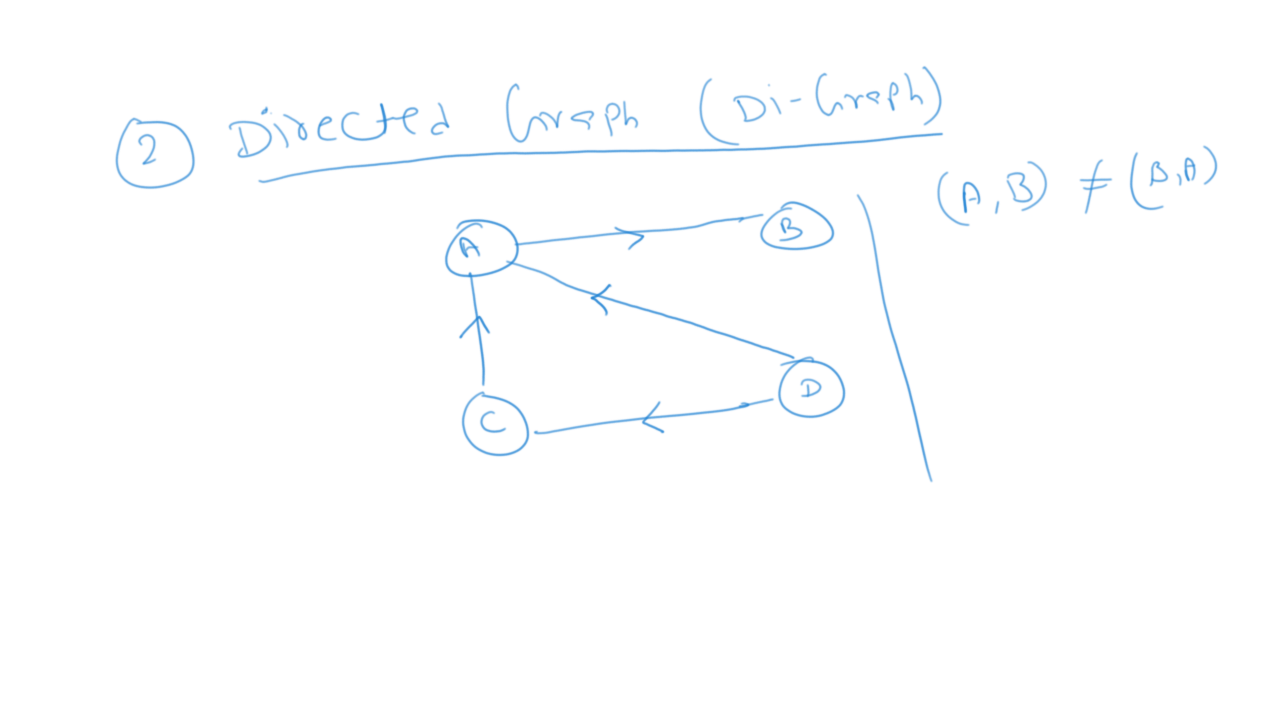 2 Directed Graph (Di-Graph)
(A, B) ≠ (B, A)
A
B
D
C